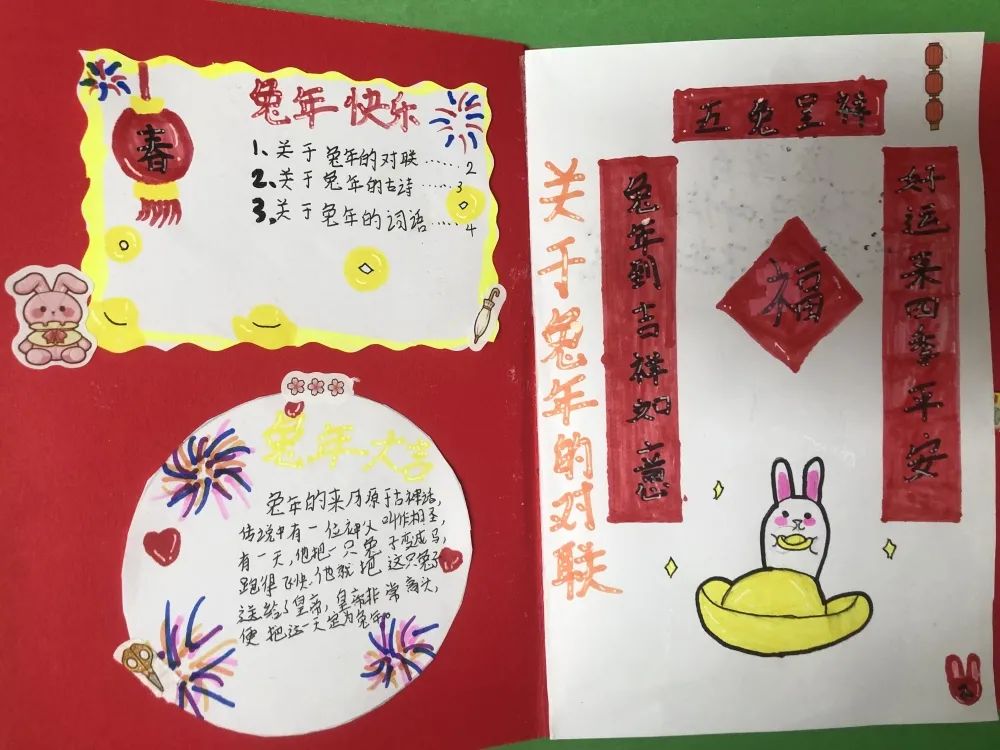 春
兔年快乐
1、关于兔年的对联......2
2、关于兔年的古诗......3
3、关于兔年的词语......4
兔年大吉
兔年的来历原于古神话,
传说中有一位神父叫作相圣,
有一天,他把一只兔子变成马,
跑得飞快.他就把这只兔子
送给了皇帝,皇帝非常高兴,
便把这一天定为兔年。
关于兔年的对联
五兔呈祥
兔年到吉祥如意
福
好运来四季平安
2